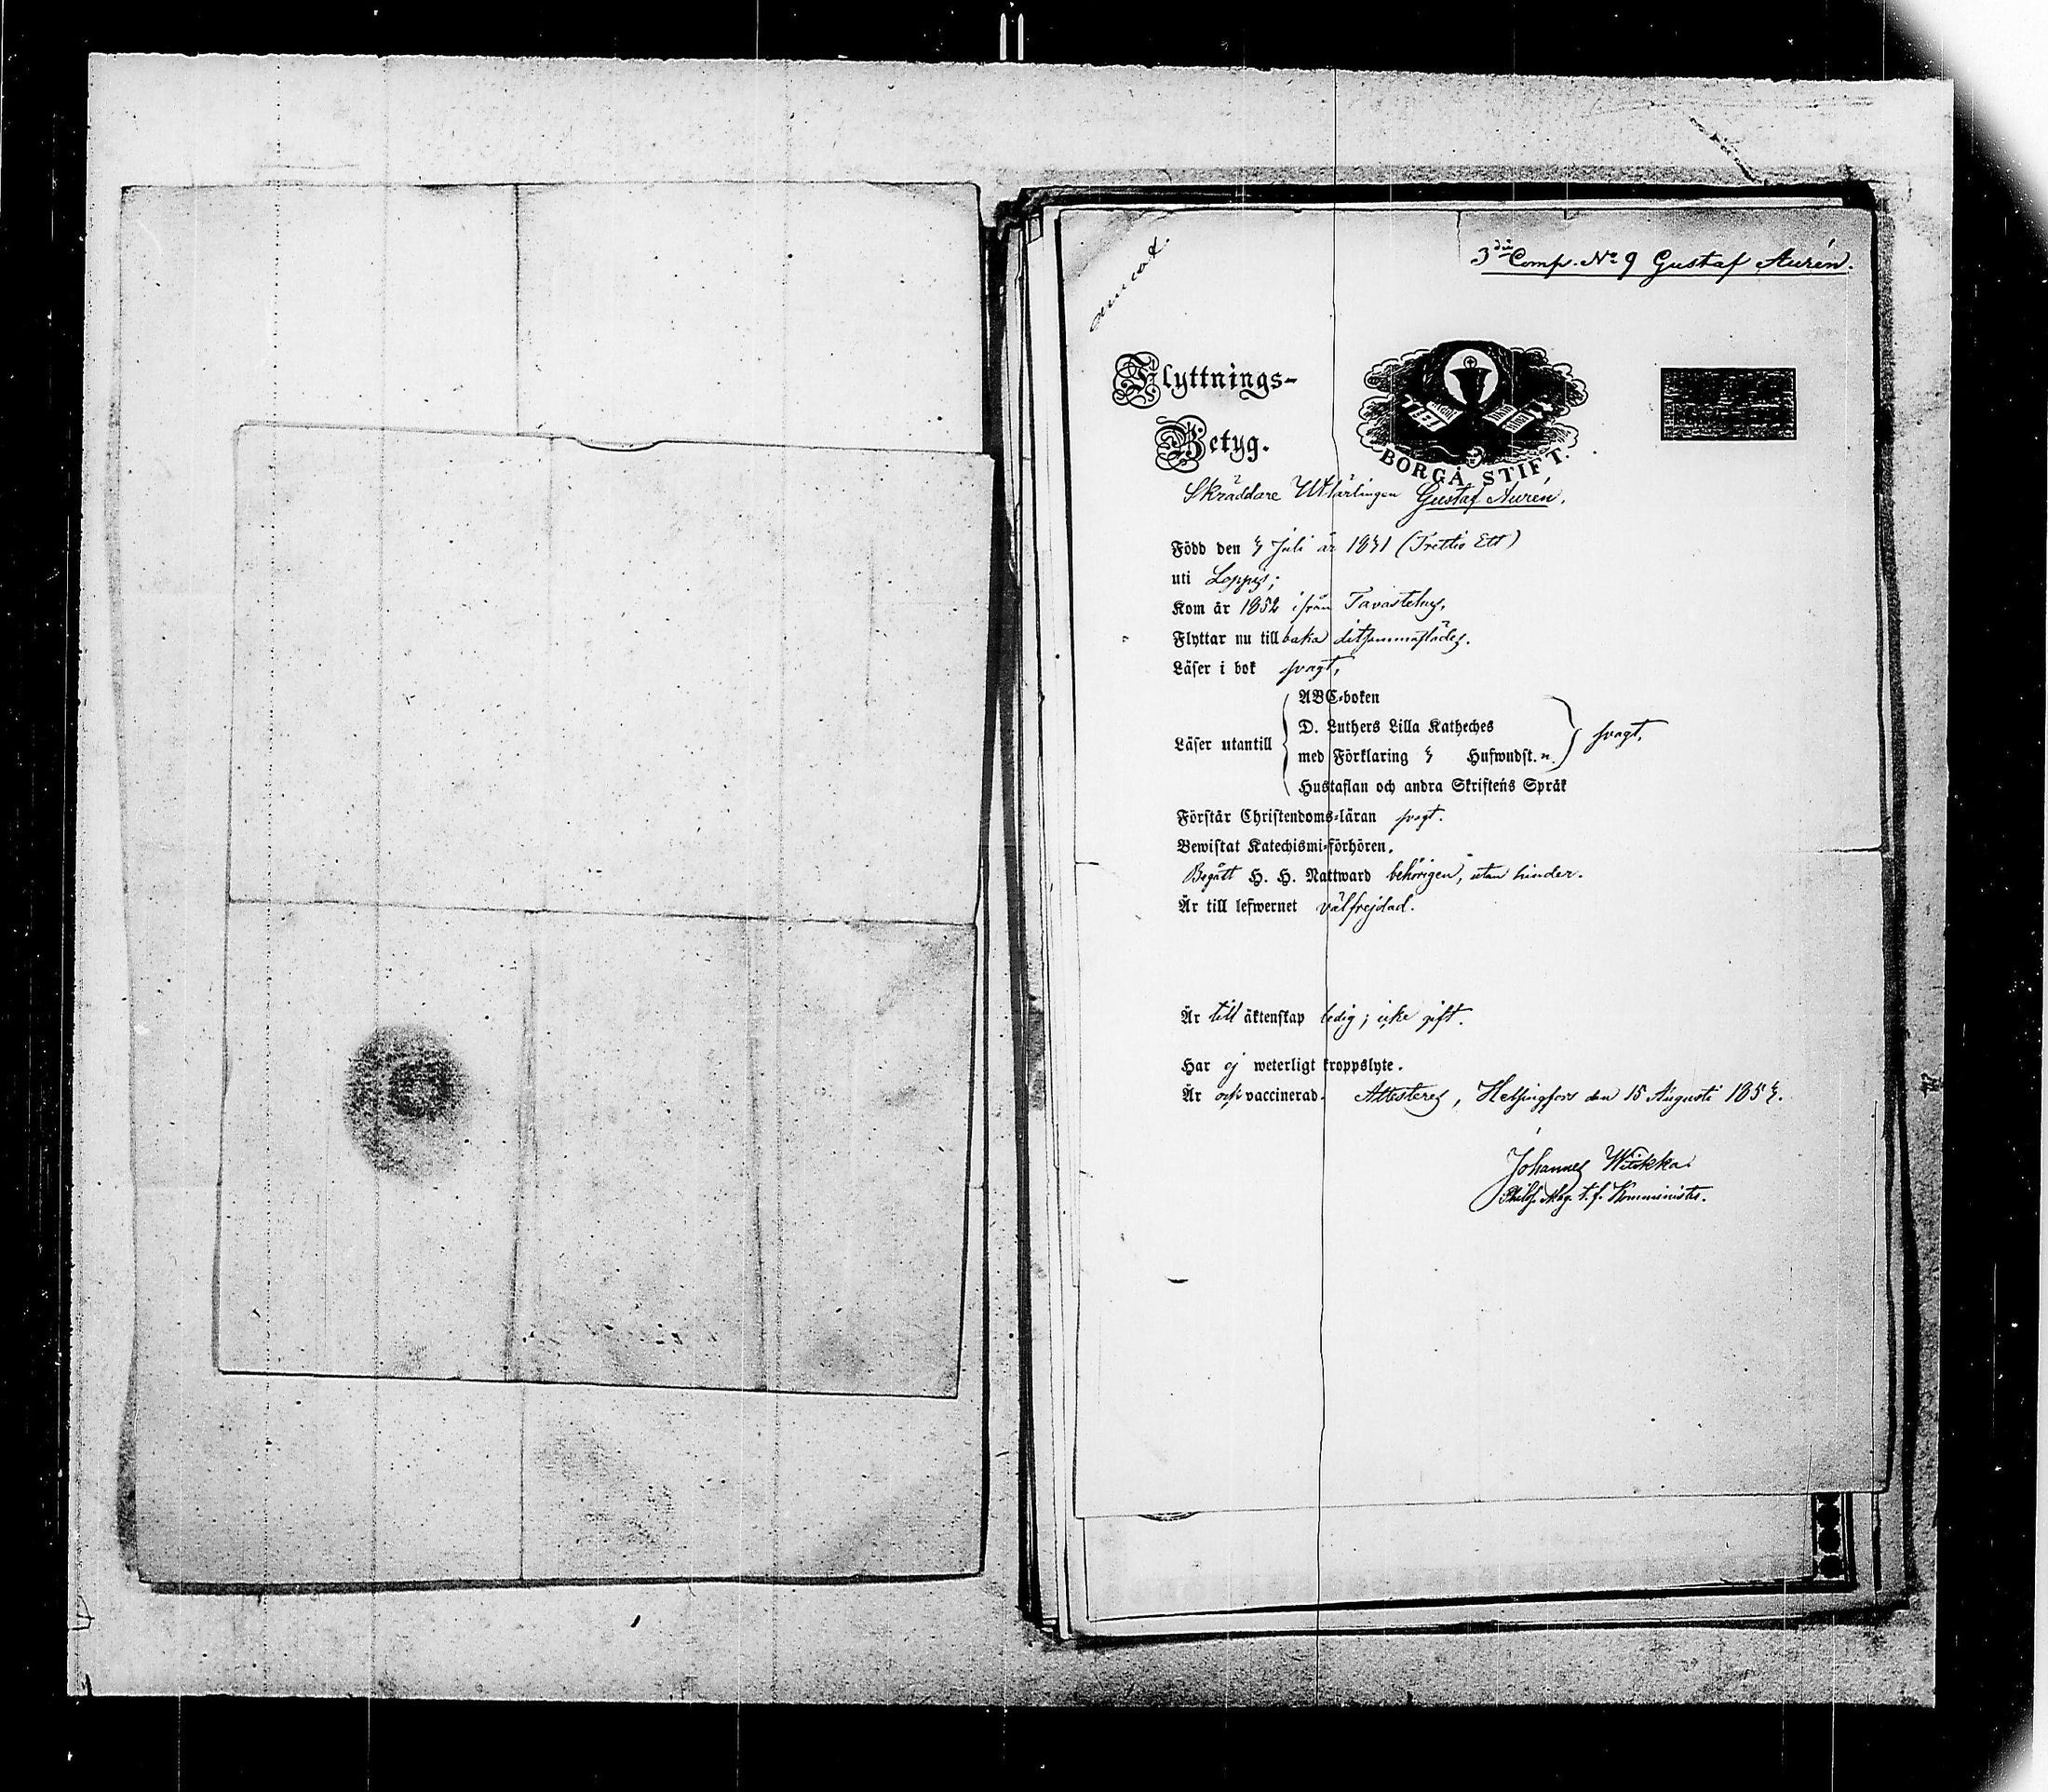 3die Comp. No 9 Gustaf Aurén.
Flyttnings-
Betyg.
BORGÅ STIFT.
Skräddare Utlärlingen Gustaf Aurén.
Född den 3 Juli år 1831 (Trettio Ett)
uti Loppis;
Kom år 1852 ifrån Tavastehus,
Flyttar nu tillbaka ditsammastädes.
Läser i bok svagt,
ABC-boken
D. Luthers Lilla Katheches
Läser utantill med Förklaring 3 Hufwudst. n. svagt,
Hustaflan och andra Skriftens Språk
Förstår Christendoms-läran svagt.
Bewistat Katechismi-förhören.
Begått H. H. Nattward behörigen, utan hinder.
Är till lefwernet välfrejdad.
Är till äktenskap ledig; icke gift.
Har ej weterligt kroppslyte.
Är ock vaccinerad. Attesteres, Helsingfors den 15 Augusti 1853.
Johannes Witikka.
Philos. Mag. t. f. Komminister.